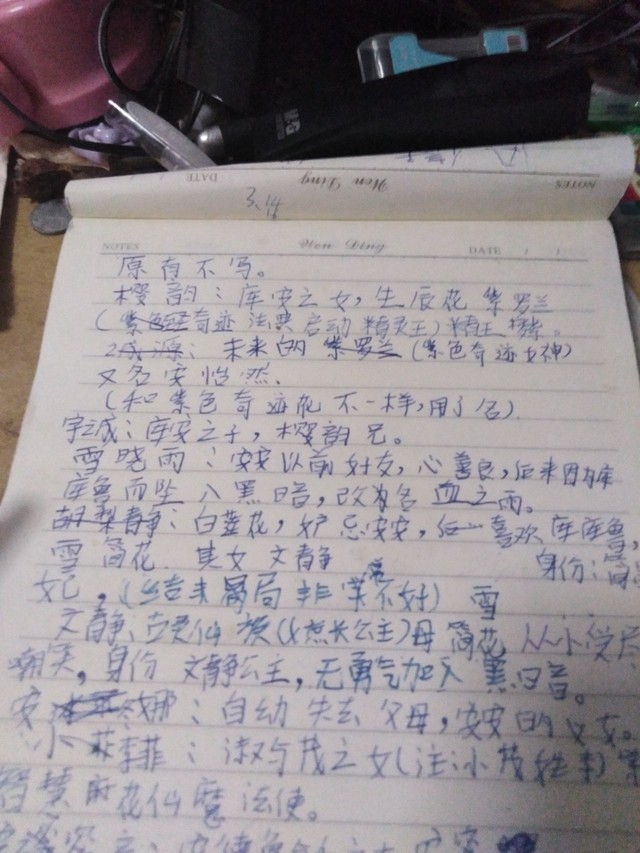 NOTES Wen Ding DATE
3.14
18
NOTES Wen Ding DATE / /
原有不写。
樱韵：库安之女，生辰花 紫罗兰
(紫色奇迹 法典 启动 精灵王)
未来的 紫罗兰 (紫色奇迹女神)
又名安怡然.
(和 紫色奇迹花 不一样，用了名).
宇成：库安之子，樱韵兄。
雪晓雨：安安以前好友，心善良，后来因为库
库鲁而坠入黑暗，改为名 血之雨。
静：白莲花，妒忌安安，后一喜欢库库鲁，
雪蔺花. 其女 文静 身份：
妃，(结末局非常不好) 雪
文静：古灵仙族(父庶长公主)母蔺花，从小受尽
嘲笑，身份 文静公主，无勇气加入 黑暗。
安 娜：自动失去 父母，安安的义女。
小 菲：淑与茂之女(注：小茂姓李)
智慧 花仙魔法使。